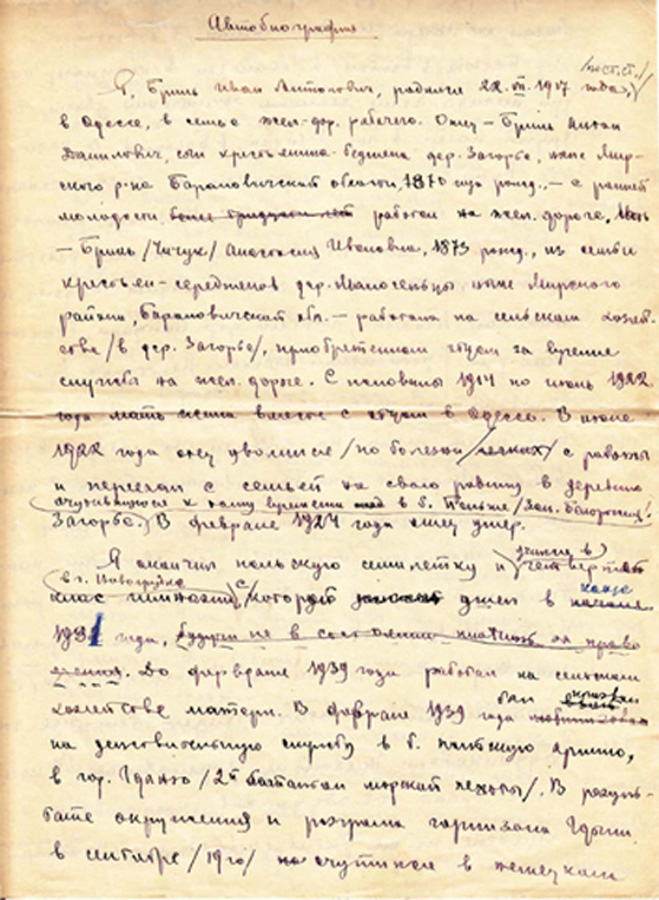 Автобиография
/по ст. ст./
Я, Брыль Иван Антонович, родился 22.VII.1917 года,
в Одессе, в семье жел.-дор. рабочего. Отец – Брыль Антон
Данилович, сын крестьянина-бедняка дер. Загорье, ныне Мир-
ского р-на Барановичской области, 1870 года рожд., – с ранней
молодости работал на жел. дороге, мать
– Брыль /Чичук/ Анастасия Ивановна, 1873 рожд., из семьи
крестьян-середняков дер. ныне Мирского
района, Барановичской обл. – работала на сельском хозяй-
стве /в дер. Загорье/, приобретенном отцом за время
службы на жел. дороге. С половины 1914 по июнь 1922
года мать жила вместе с отцом в Одессе. В июне
1922 года отец уволился /по болезни легких/ с работы
и переехал с семьей на свою родину в деревню
очутившуюся к тому времени в б. Польше /Зап. Белоруссия/
Загорье. В феврале 1924 года отец умер.
Я окончил польскую семилетку и
учился в
в г. Новогрудке
клас гимназии, с которой ушел в
конце
1931 года, будучи не в состоянии платить за право
учения. До февраля 1939 года работал на сельском
хозяйстве матери. В феврале 1939 года
был призван
на действительную службу в б. польскую армию,
в гор. Гдыню /2й батальон морской пехоты/. В резуль-
тате окружения и разгрома гарнизона Гдыни
в сентябре /19го/ очутился в немецком